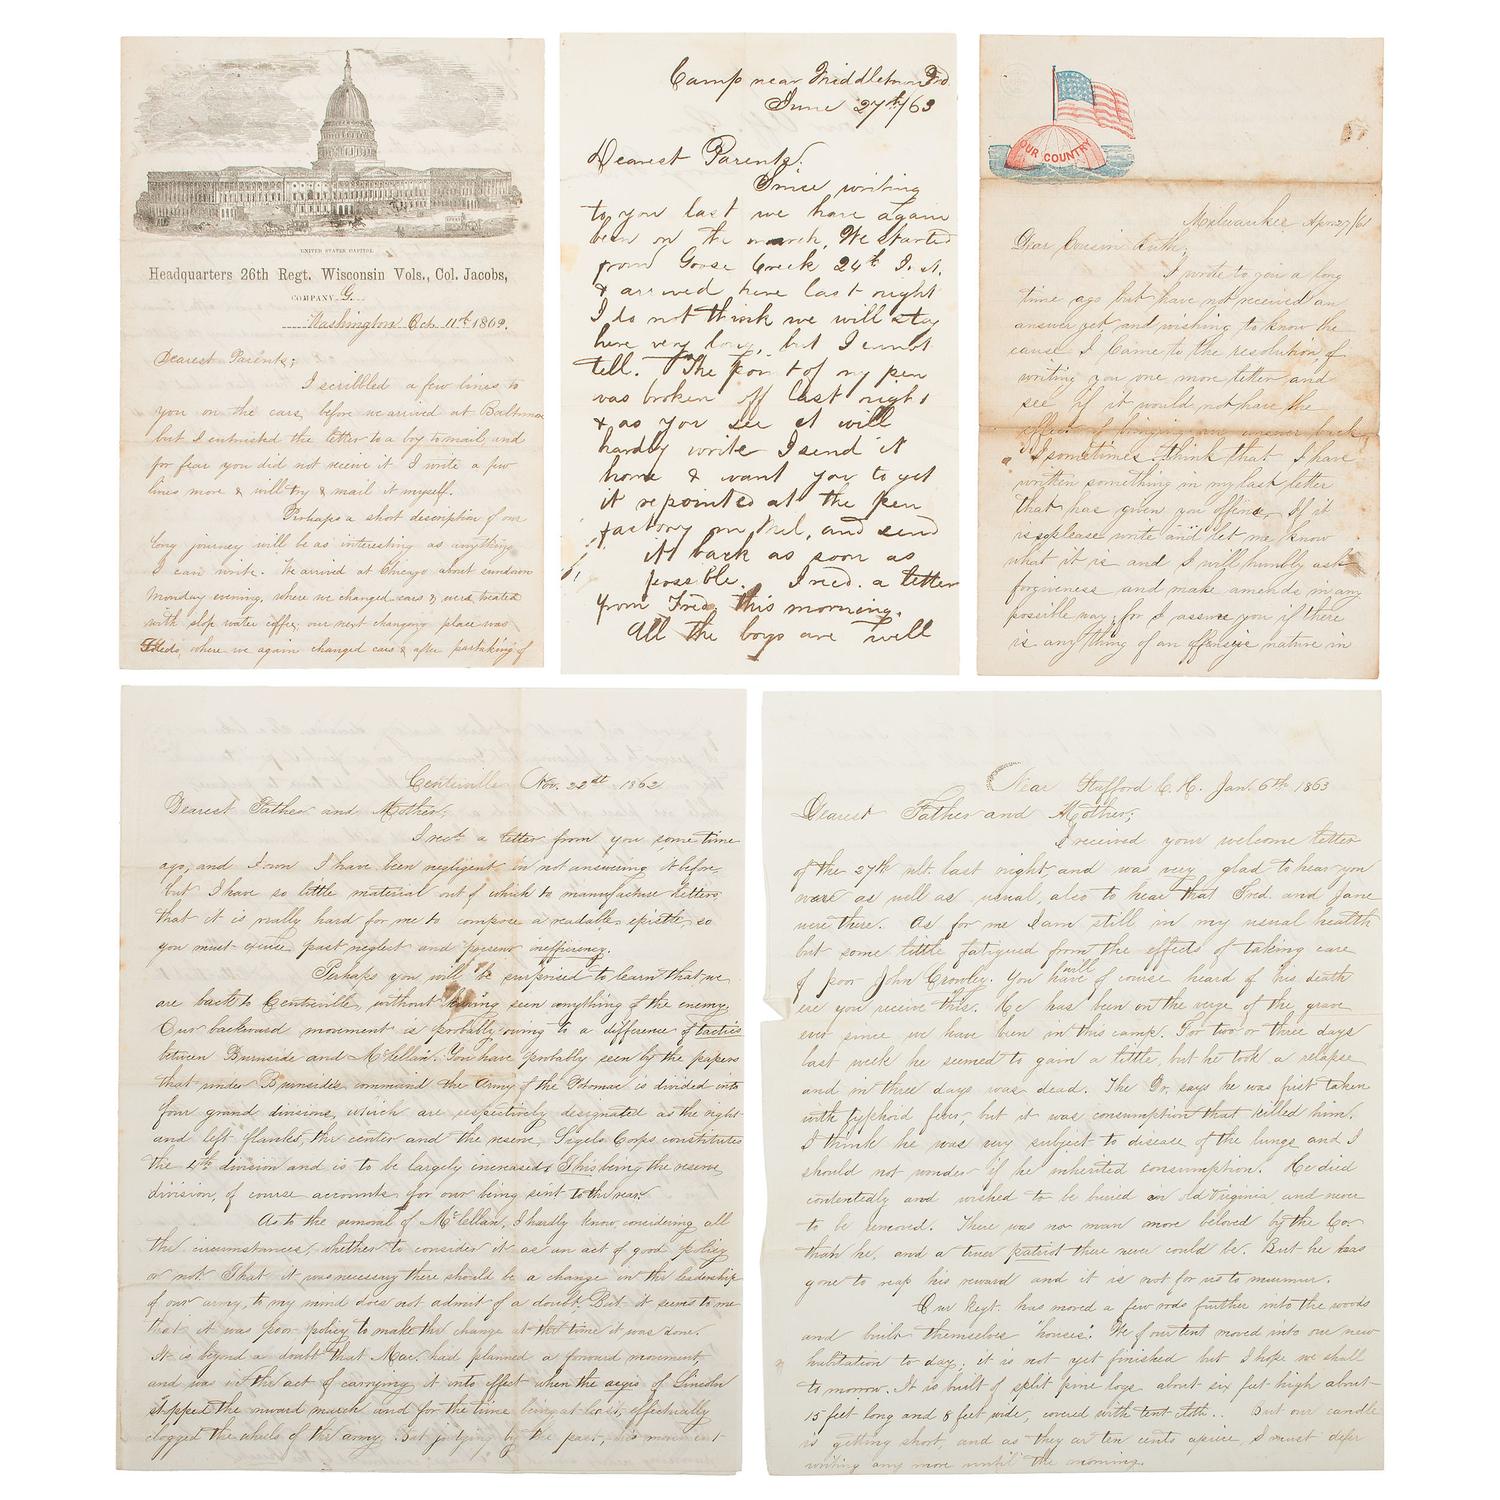 UNITED STATES CAPITOL
Headquarters 26th Regt. Wisconsin Vols., Col. Jacobs,
COMPANY G.
Washington Oct. 11th 1862.
Dearest Parents;
I scribbled a few lines to
you on the cars, before we arrived at Baltimore
but I entrusted the letter to a boy to mail, and
for fear you did not receive it I write a few
lines more & will try & mail it myself.
Perhaps a short description of our
long journey will be as interesting as anything
I can write. We arrived at Chicago about sundown
Monday evening, where we changed cars & were treated
with slop water coffee; our next changing place was
Toledo, where we again changed cars & after partaking of
Camp near Middletown Md.
June 27th/63
Dearest Parents.
Since writing
to you last we have again
been on the march, We started
from Goose Creek 24th Inst.
& arrived here last night
I do not think we will stay
here very long, but I cannot
tell. The point of my pen
was broken off last night
& as you see it will
hardly write I send it
home & want you to get
it repointed at the pen
factory on Mil, and send
it back as soon as
possible. I recd. a letter
from Fred this morning.
All the boys are well
OUR COUNTRY
Milwaukee Apr 27/61
Dear Cousin Ruth;
I wrote to you a long
time ago but have not received an
answer yet and wishing to know the
cause I came to the resolution of
writing you one more letter and
see if it would not have the
effect of bringing an answer back
I sometimes think that I have
written something in my last letter
that has given you offence, If it
is so please write and let me know
what it is and I will humbly ask
forgiveness and make amends in any
possible way; for I assure you if there
is anything of an offensive nature in
Centerville Nov. 22dt 1862
Dearest Father and Mother;
I recd a letter from you some time
ago, and I own I have been negligent in not answering it before,
but I have so little material out of which to manufacture letters,
that it is really hard for me to compose a readable epistle, so
you must excuse past neglect and present inefficiency.
Perhaps you will be surprised to learn that we
are back to Centerville, without having seen anything of the enemy.
Our backward movement is probably owing to a difference of tactics
between Burnside and McClellan. You have probably seen by the papers
that under Burnside's command the Army of the Potomac is divided into
four grand divisions, which are respectively designated as the right
and left flanks, the center and the reserve, Sigels Corps constitutes
the 4th division and is to be largely increased. This being the reserve
division, of course accounts for our being sent to the rear.
As to the removal of McClellan, I hardly know, considering all
the circumstances, whether to consider it as an act of good policy
or not. That it was necessary there should be a change in the leadership
of our army, to my mind does not admit of a doubt. But it seems to me
that it was poor policy to make the change at the time it was done.
It is beyond a doubt that Mac. had planned a forward movement,
and was in the act of carrying it into effect when the aegis of Lincoln
stopped the onward march and for the time being at least, effectually
clogged the wheels of the army. But judging by the past, his movement
Near Stafford C. H. Jan. 6th 1863
Dearest Father and Mother;
I received your welcome letter
of the 27th ult. last night, and was very glad to hear you
were as well as usual, also to hear that Fred. and Jane
were there. As for me I am still in my usual health
but some little fatigued from the effects of taking care
of poor John Crowley. You will have of course heard of his death
ere you receive this. He has been on the verge of the grave
ever since we have been in this camp. For two or three days
last week he seemed to gain a little, but he took a relapse
and in three days was dead. The Dr. says he was first taken
with typhoid fever, but it was consumption that killed him.
I think he was very subject to disease of the lungs and I
should not wonder if he inherited consumption. He died
contentedly and wished to be buried in Old Virginia, and never
to be removed. There was no man more beloved by the Co.
than he, and a truer patriot there never could be. But he has
gone to reap his reward and it is not for us to murmur.
Our Regt. has moved a few rods further into the woods
and built themselves "houses". We of our tent moved into our new
habitation to day; it is not yet finished but I hope we shall
to morrow. It is built of split pine logs about six feet high about
15 feet long and 8 feet wide, covered with tent cloth.. But our candle
is getting short, and as they are ten cents apiece, I must defer
writing any more until the morning.